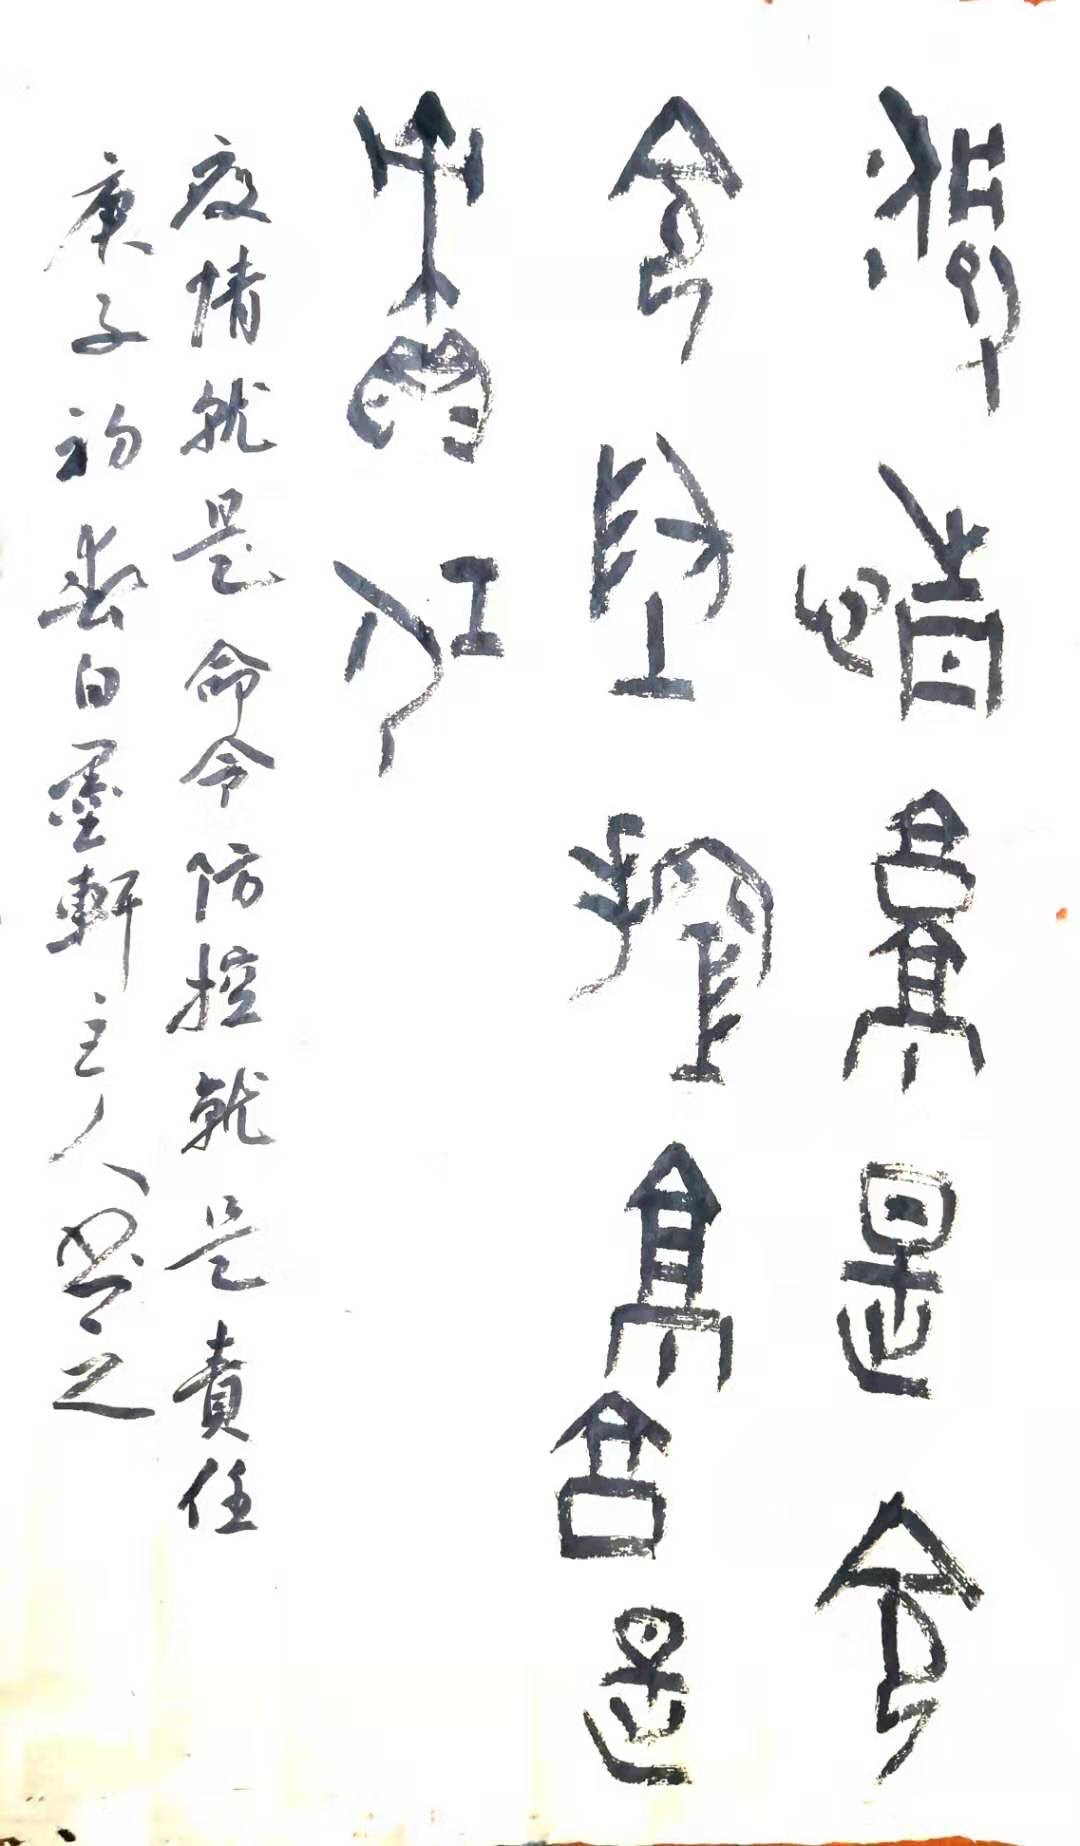 疫情就是命
令防控就是
責任
疫情就是命令防控就是責任
庚子初春白墨軒主人書之